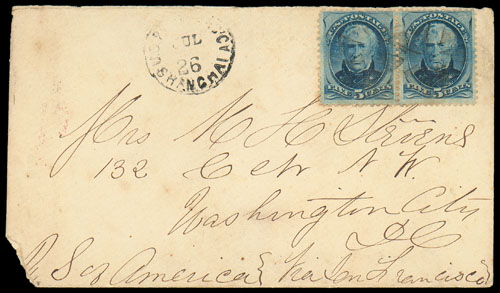 JUL
26
SHANGHAI
U.S. POSTAGE U.S. POSTAGE
FIVE 5 CENTS FIVE 5 CENTS
Mrs M H Stevens
132 C St N. W.
Washington City
D C
Per S.S. America (Via San Francisco)